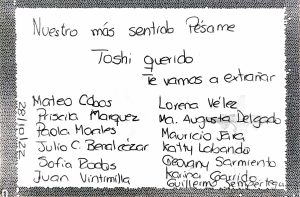 Nuestro más sentido Pésame
Toshi querido
Te vamos a extrañar
Mateo Cobos
Priscila Marquez
Paola Morales
Julio C. Beralcázar
Sofia Rodas
Juan Vintimilla
Lorena Vélez
Ma. Augusta Delgado
Mauricio Jara
Katty Labanda
Geovany Sarmiento
Karina Garrido
Guillermo Sempertegui
28/10/22